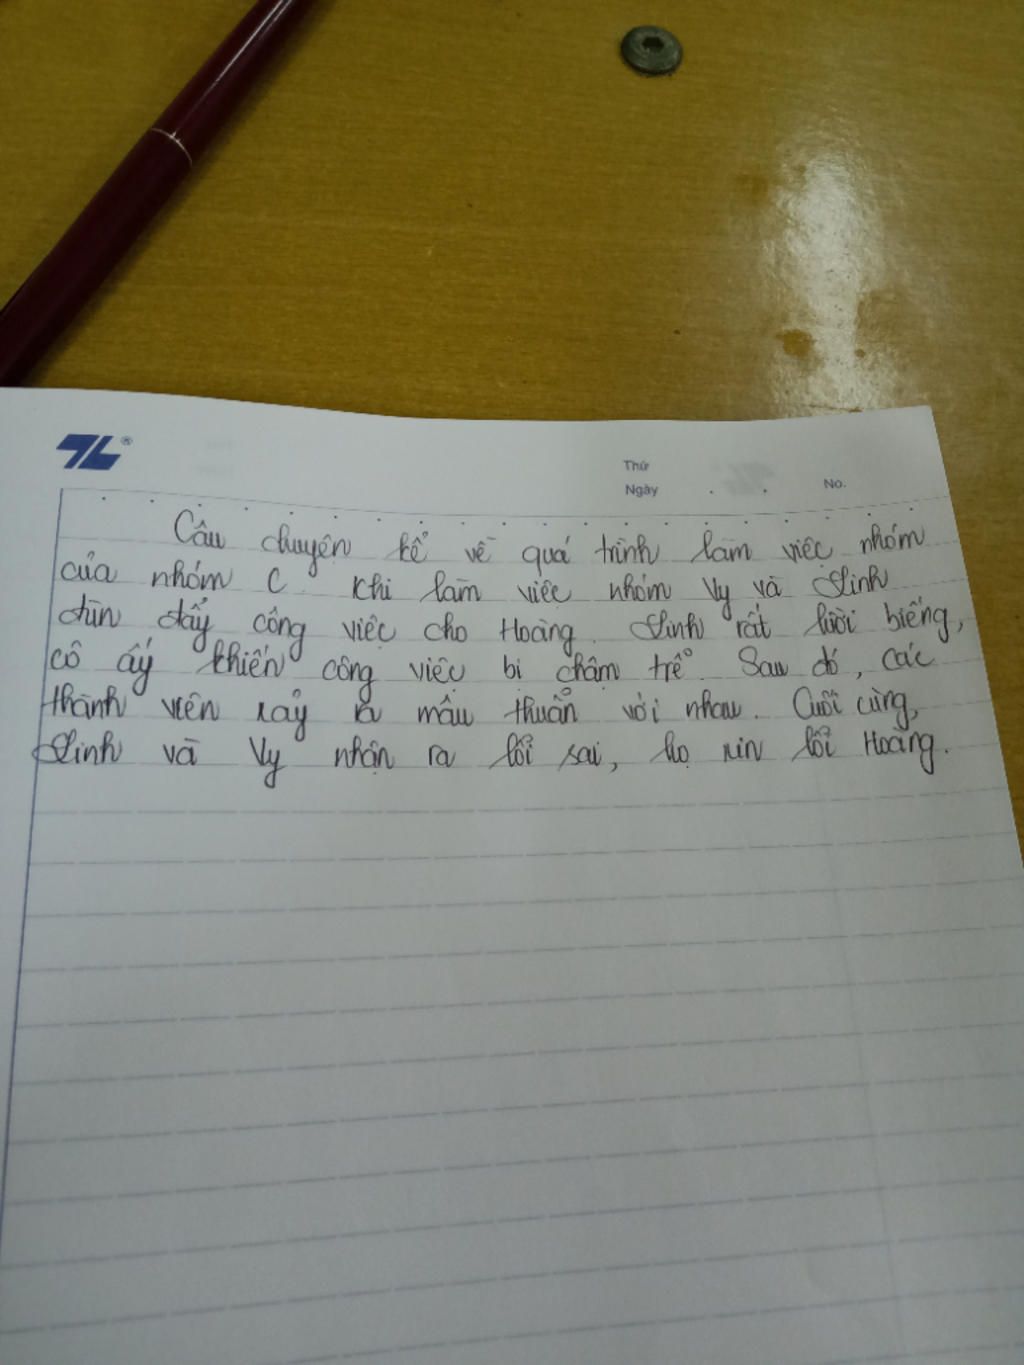 ZL®
Thứ
Ngày . . No.
Câu chuyện kể về quá trình làm việc nhóm
của nhóm C. Khi làm việc nhóm Vy và Linh
đùn đẩy công việc cho Hoàng. Linh rất lười biếng,
cô ấy khiến công việc bị chậm trễ. Sau đó, các
thành viên xảy ra mâu thuẩn với nhau. Cuối cùng,
Linh và Vy nhận ra lỗi sai, họ xin lỗi Hoàng.